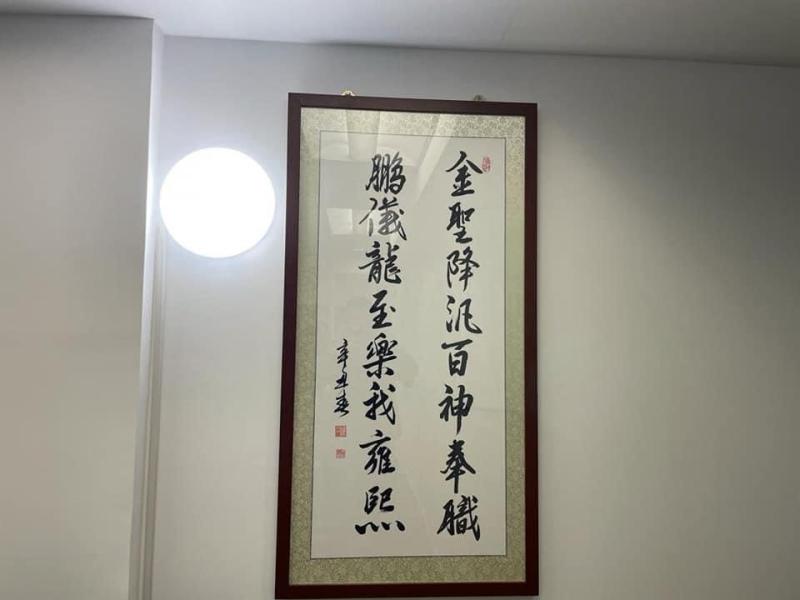 金聖降汎百神奉職
鵬儀龍至樂我雍熙
辛丑春